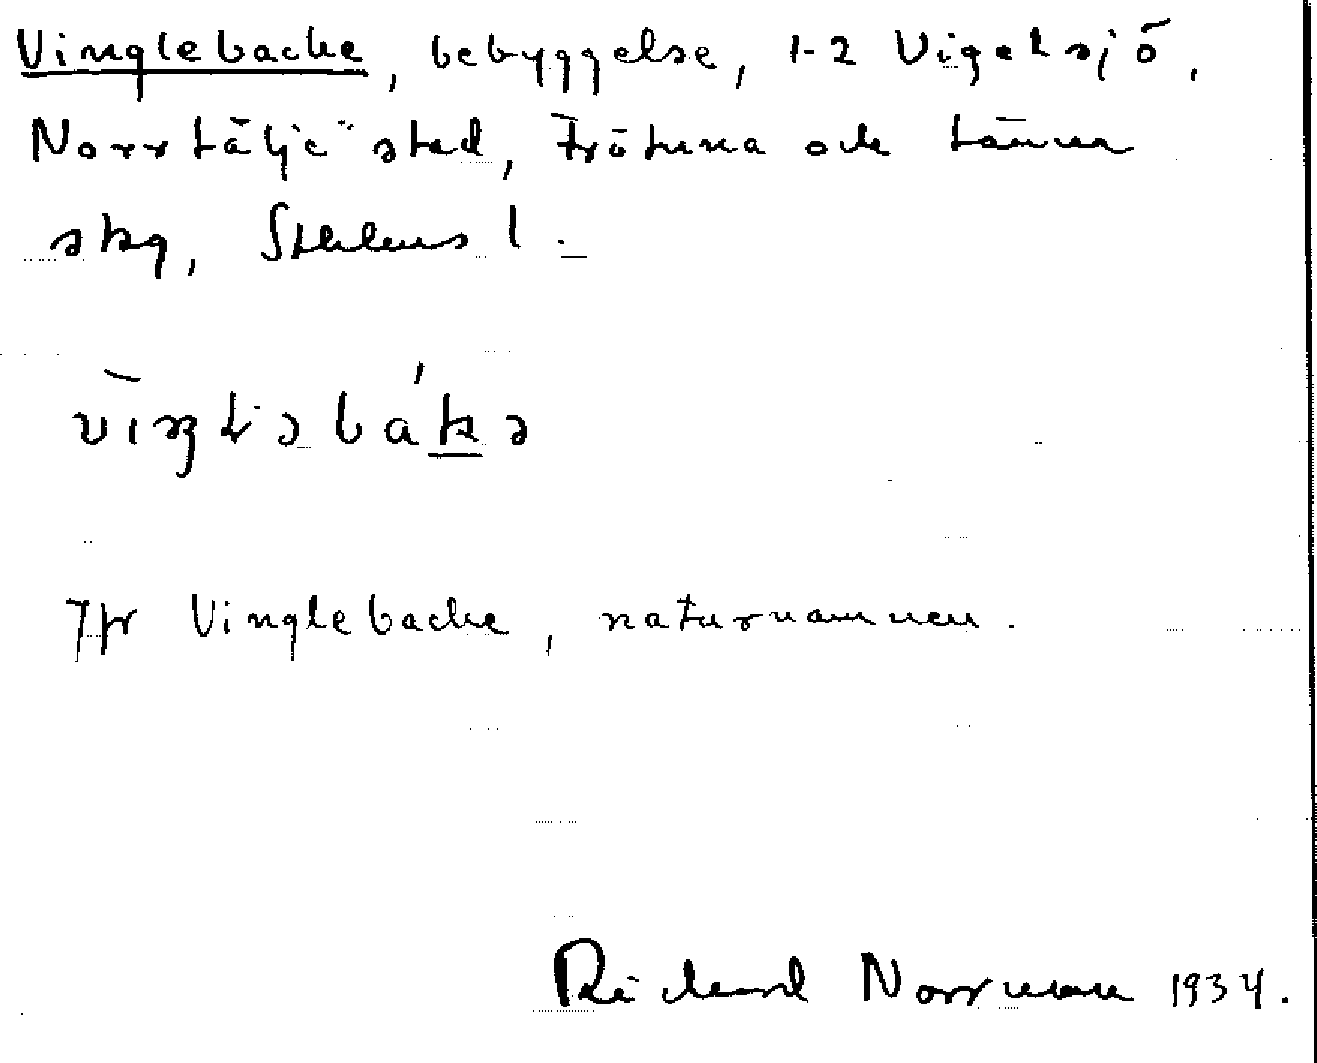 Vinglebacke, bebyggelse, 1-2 Vigelsjö,
Norrtälje stad, Frötuna och Länna
skg, Sthlms l.
Jfr Vinglebacke, naturnamnen.
Richard Norrman 1934.